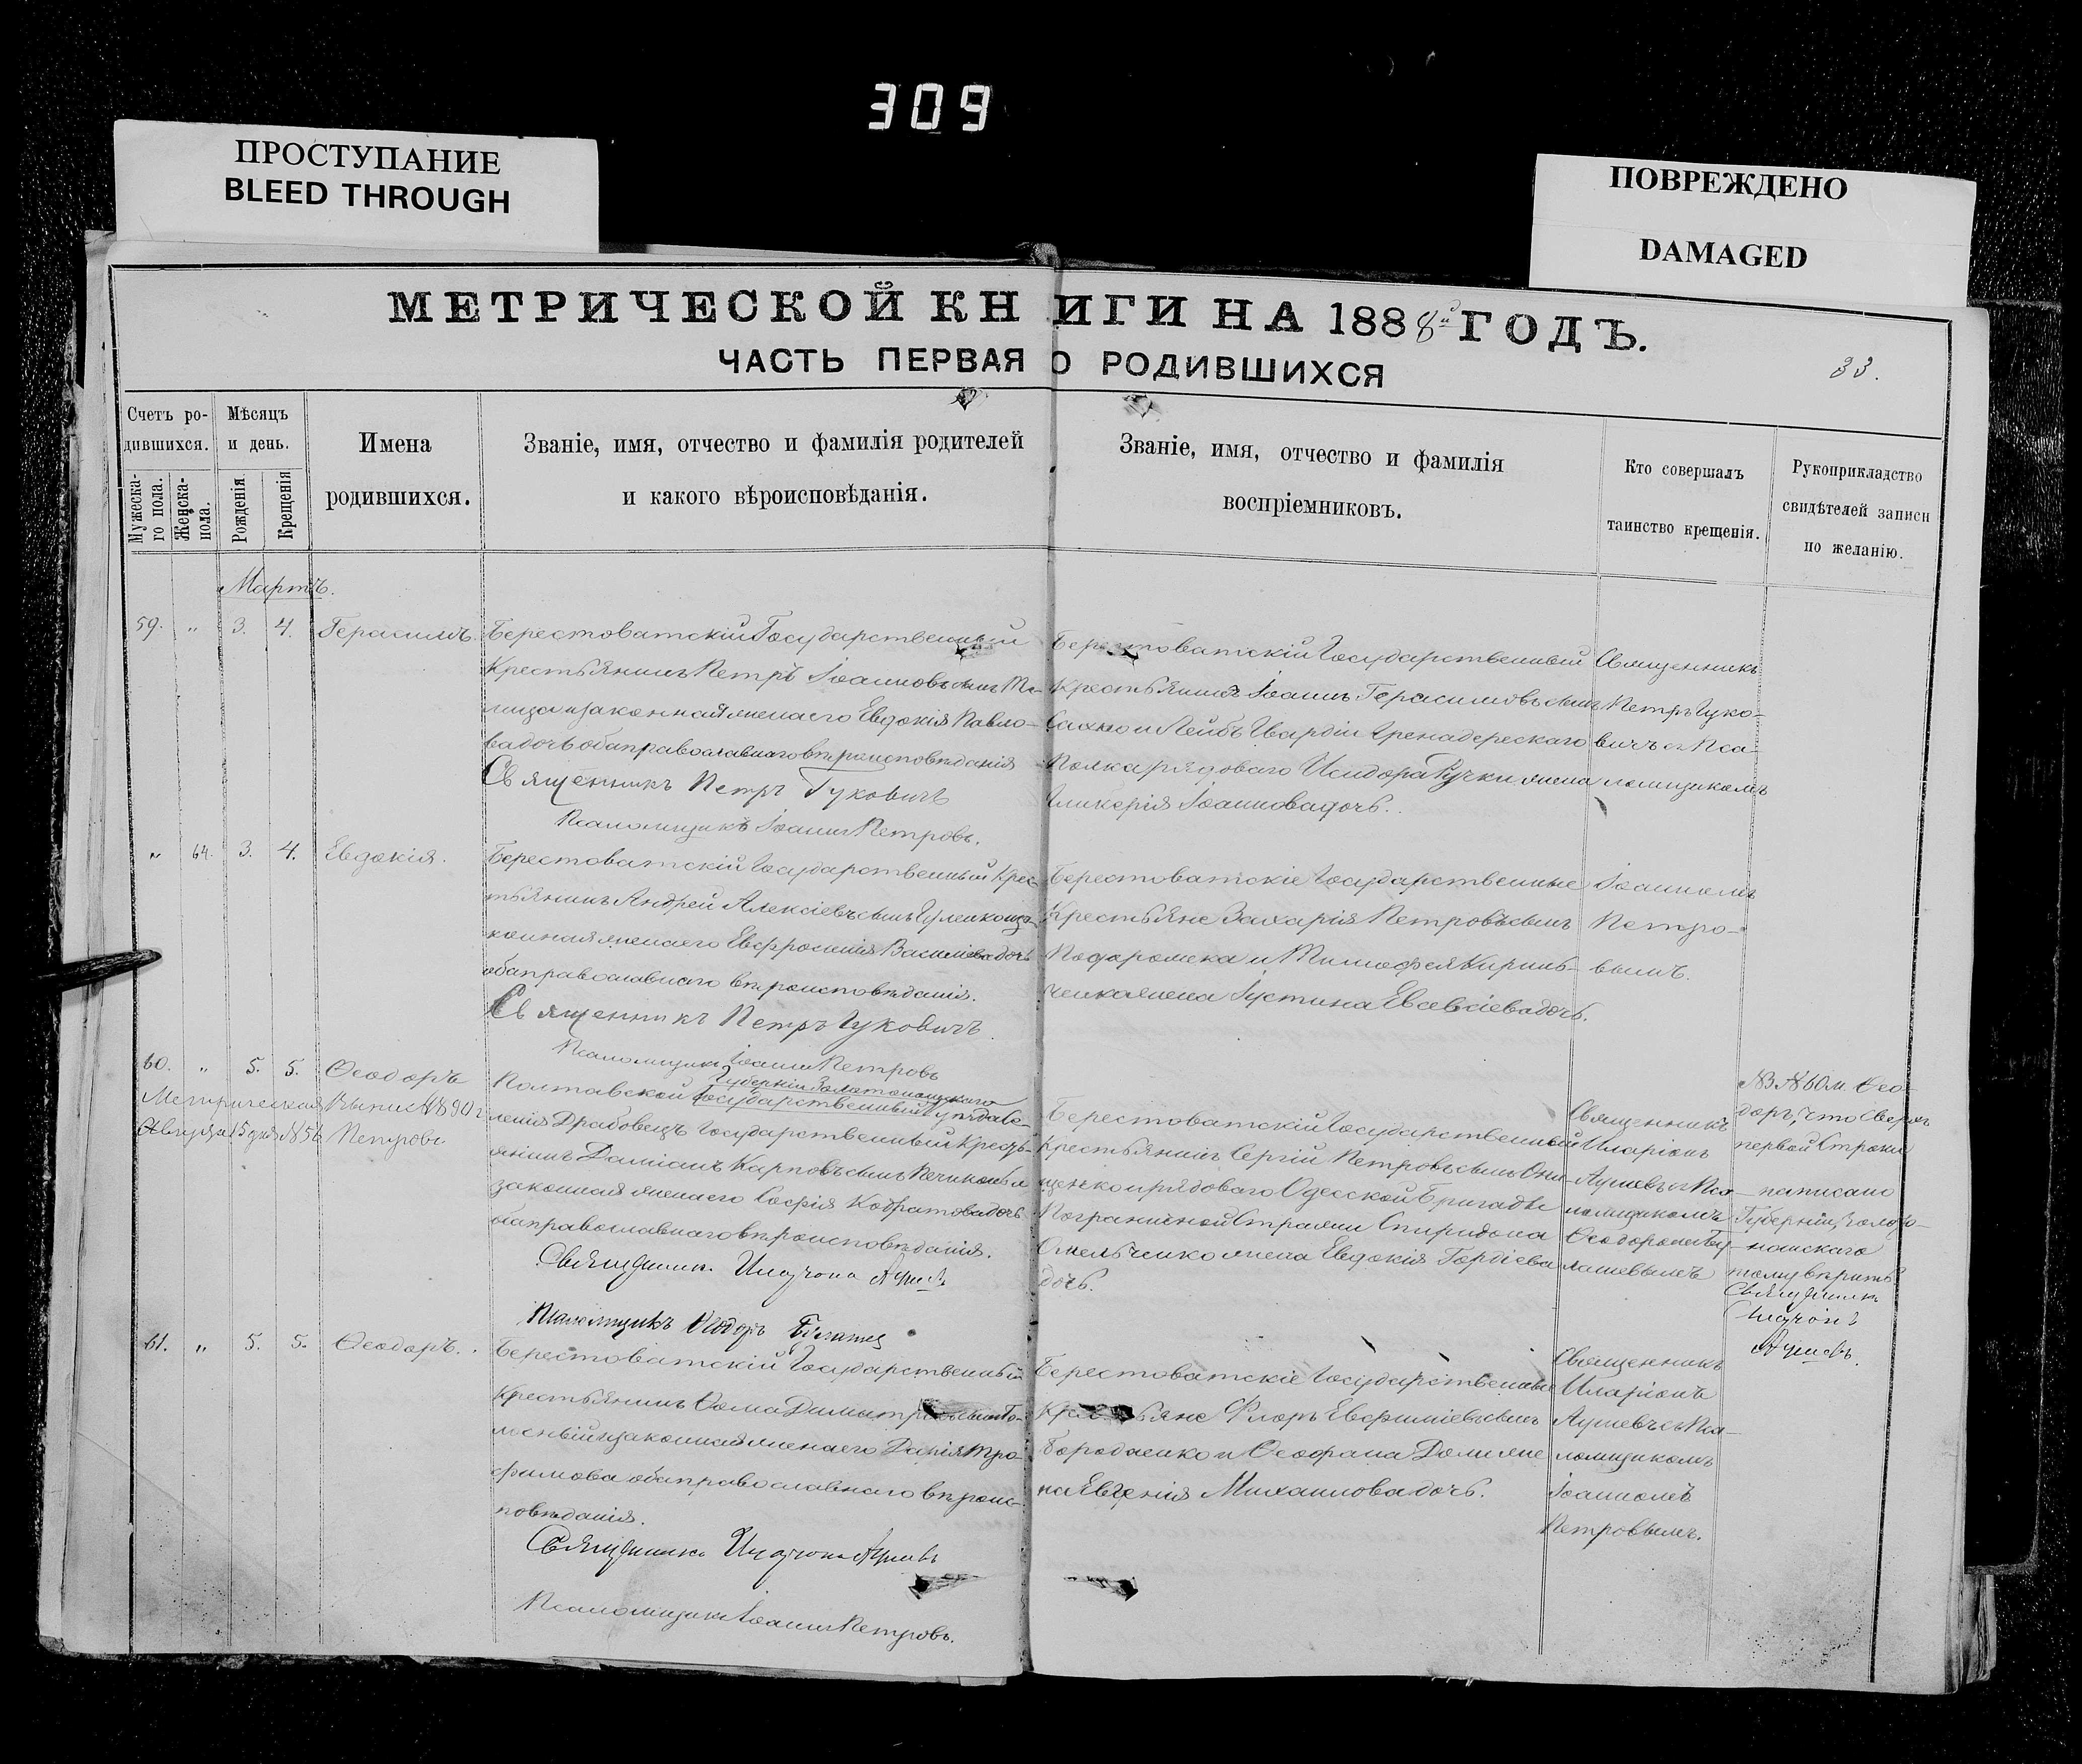 309
ПРОСТУПАНИЕ
BLEED THROUGH
ПОВРЕЖДЕНО
DAMAGED
МЕТРИЧЕСКОЙ КНИГИ НА 1888й ГОДЪ.
ЧАСТЬ ПЕРВАЯ О РОДИВШИХСЯ
33.
Счетъ ро-
дившихся.
Мужеска-
го пола.
Женска-
пола.
Мѣсяцъ
и день.
Рожденія
Крещенія
Имена
родившихся.
Званіе, имя, отчество и фамилія родителей
и какого вѣроисповѣданія.
Званіе, имя, отчество и фамилія
воспріемниковъ.
Кто совершалъ
таинство крещенія.
Рукоприкладство
свидѣтелей записи
по желанію.
Мартъ.
59. " 3. 4. Герасимъ.
Берестоватскій Государственный
Крестьянинъ Петръ Іоанновъ сынъ
законная жена его Евдокія Павло-
ва дочь оба православнаго вѣроисповѣданія
Священникъ Петръ Гуковичъ
Псаломщикъ Іоаннъ Петровъ.
Берестоватскій Государственный
Крестьянинъ Іоаннъ Герасимовъ сынъ
Сахно и Лейбъ Гвардіи Гренадерескаго
Полка рядоваго Исидора Ручки жена
Гликерія Іоаннова дочь.
Священникъ
Петръ Гуко-
вичъ съ Пса
ломщикомъ
" 64. 3. 4. Евдокія.
Берестоватскій Государственный Крес-
тьянинъ Андрей Алексіевъ сынъ
конная жена его Евфросинія Василіева дочь
оба православнаго вѣроисповѣданія.
Священникъ Петръ Гуковичъ
Псаломщикъ Іоаннъ Петровъ
Берестоватскіе Государственные
Крестьяне Захарія Петровъ сынъ
и Тимофея
жена Іустина Евсевіева дочь.
Іоанномъ
Петро-
вымъ.
60. " 5. 5. Ѳеодоръ
Метрическая
Августа 15 дня №56 Петровъ
Губерніи Золотоношскаго
Полтавской Государственный Уѣзда Се-
ленія Драбовецъ Государственный Кресть-
янинъ Даміанъ Карповъ сынъ
законная жена его Софія Кодратова дочь
оба православнаго вѣроисповѣданія.
Священникъ Иларіонъ
Псаломщикъ Ѳеодоръ
Берестоватскій Государственный
Крестьянинъ Сергій Петровъ сынъ Они-
щенко и рядоваго Одесской Бригады
Пограничной Стражи Спиридона
Омельченко жена Евдокія Гордіева
дочь.
Священникъ
Иларіонъ
съ Пса-
ломщикомъ
Ѳеодоромъ
Ѳео-
доръ, что сверхъ
первой строки
написано
Губерніи Золото-
ношскаго
тому вѣрить
Священникъ
Иларіонъ
61. " 5. 5. Ѳеодоръ.
Берестоватскій Государственный
Крестьянинъ Ѳома
законная жена его Дарія Тро-
фимова оба православнаго вѣроис-
повѣданія.
Священникъ Иларіонъ
Псаломщикъ Іоаннъ Петровъ.
Берестоватскіе Государственные
Флоръ Евфиміевъ сынъ
Бородаенко и Ѳеофана же
на Евгенія Михаилова дочь.
Священникъ
Иларіонъ
съ Пса-
ломщикомъ
Іоанномъ
Петровымъ.